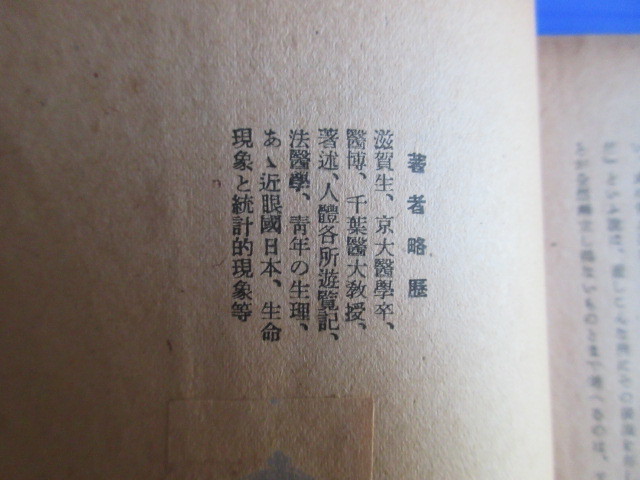 著者略歴
滋賀生、京大醫學卒、
醫博、千葉醫大教授、
著述、人體各所遊覽記、
法醫學、靑年の生理、
あゝ近眼國日本、生命
現象と統計的現象等